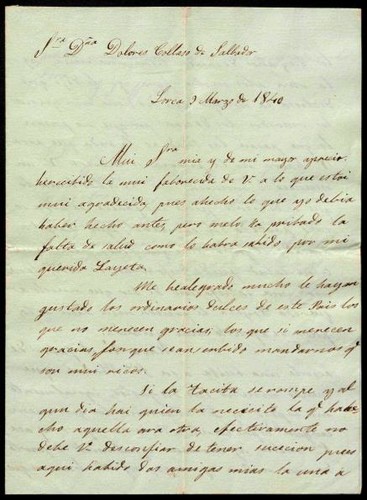 Sra Dña Dolores Collaso de Salbador
Lorca 9 Marzo de 1840
Mui Sra mia y de mi mayor aprecio:
herecibido la mui faborecida de V. a lo que estoi
mui agradecida, pues ahecho lo que yo debia
haber hecho antes, pero melo ha pribado la
falta de salud como le habra sabido por mi
querida Layeta.
Me healegrado mucho le hayan
gustado los ordinarios dulces de este Pais los
que no merecen gracias, los que si merecen
gracias, son que sean serbido mandarnos q
son mui ricos.
Si la tacita serompe y al
gun dia hai quien la necesite la q ha he
cho aquella ara otra, efectivamente no
debe V. desconfiar de tener sucecion pues
aqui habido dos amigas mias la una a